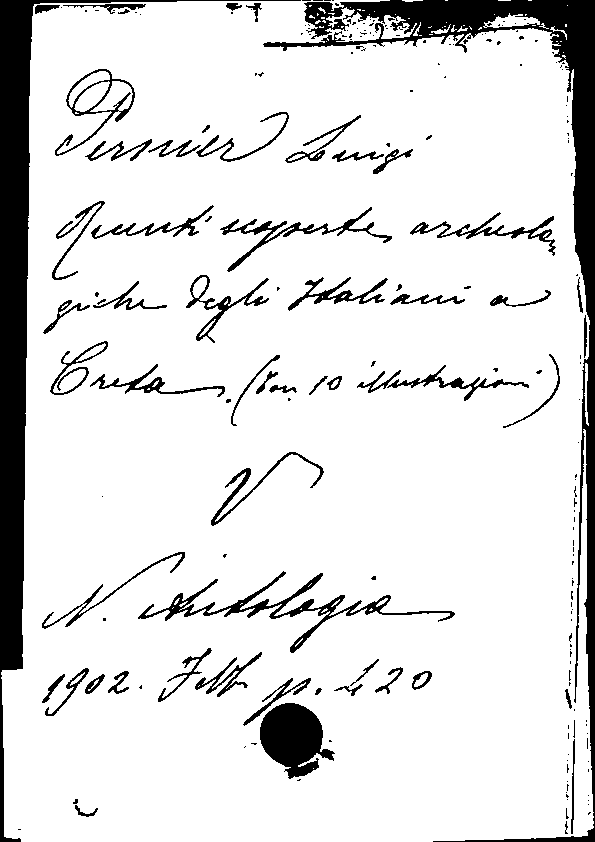 Pernier Luigi
Recenti scoperte archeolo-
giche degli Italiani a
Creta. (Con 10 illustrazioni)
V
N. Antologia
1902. Febb. p. 420